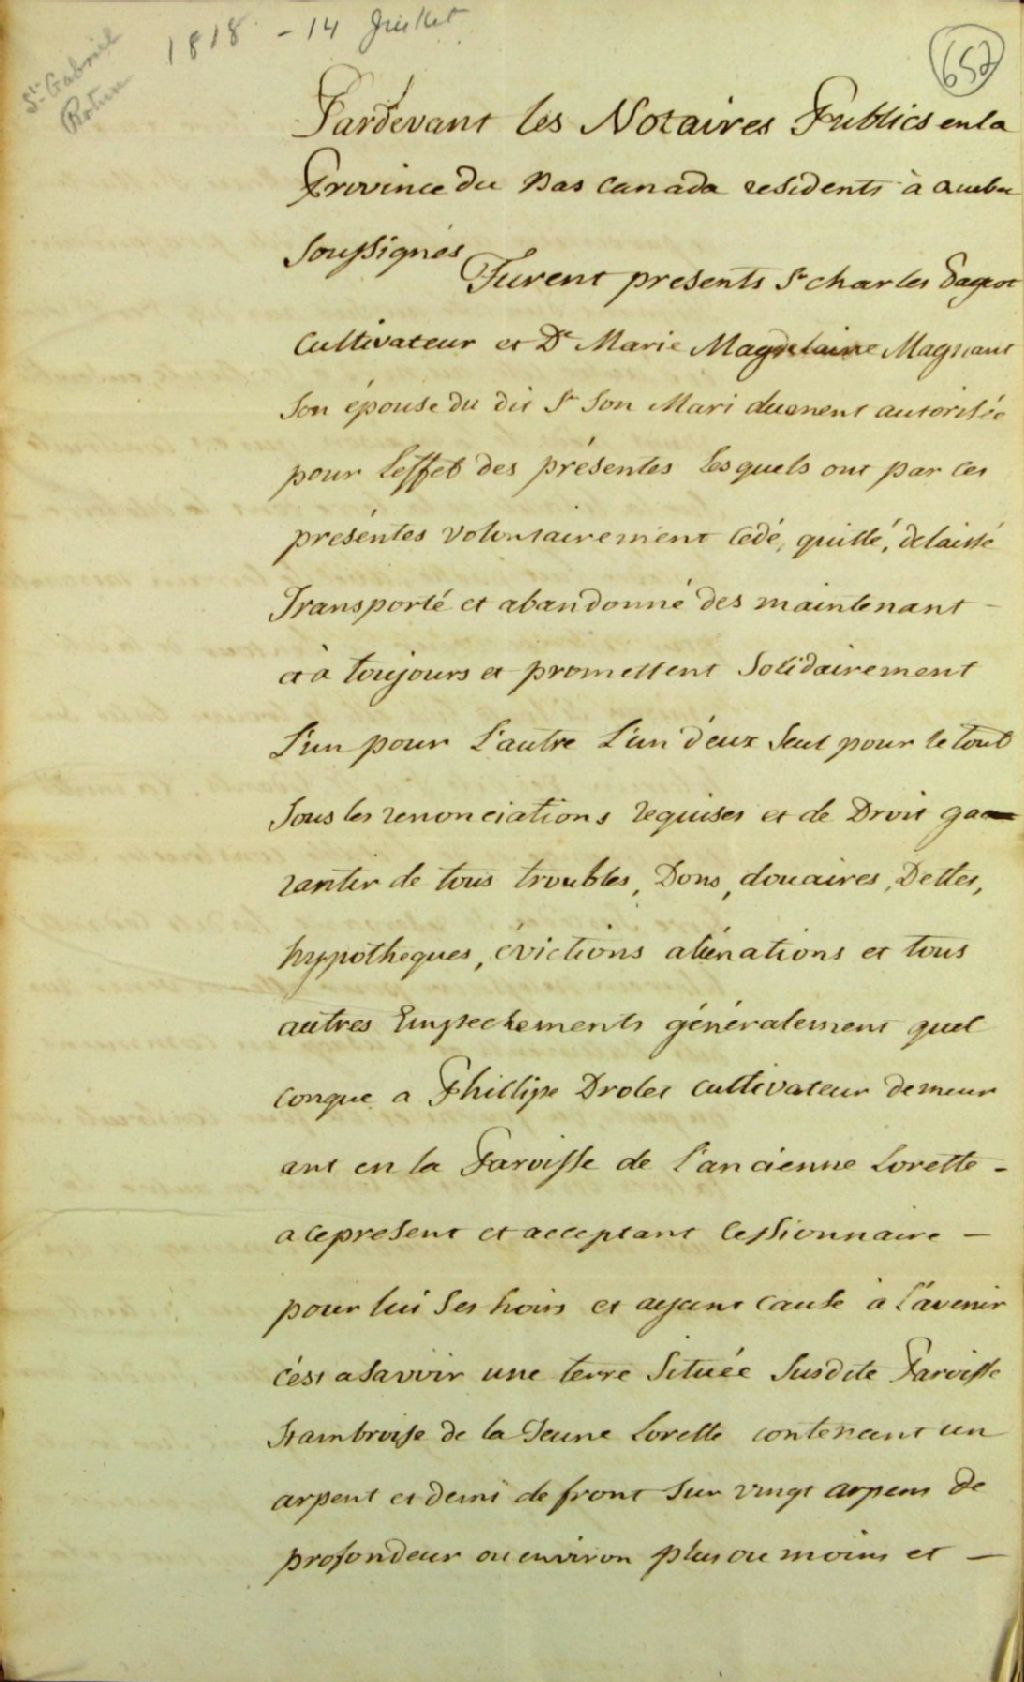 1818 - 14 Juillet
St. Gabriel
Roture
652
Pardevant les Notaires Publics en la
Province du Bas Canada residents à Quebec
Soussignés
Furent presents Sr charles Pageot
Cultivateur et De Marie Magdelaine Magnant
Son épouse du dit Sr Son Mari duement autorisée
pour L'effet des présentes Lesquels ont par ces
présentes volontairement cédé, quitté, delaissé
Transporté et abandonné des maintenant -
et à toujours et promettent Solidairement
L'un pour L'autre L'un d'eux Seul pour le tout
Sous les renonciations requises et de Droit ga
rantir de tous troubles, Dons, douaires, Dettes,
hypotheques, évictions aliénations et tous
autres Empechements généralement quel
conque a Phillipe Drolet cultivateur demeur
ant en la Paroisse de l'ancienne Lorette -
a ce present et acceptant Cessionnaire -
pour lui Ses hoirs et ayant Cause à l'avenir
c'est a savoir une terre Située Susdite Paroisse
St ambroise de la Jeune Lorette contenant un
arpent et demi de front Sur vingt arpens de
profondeur ou environ plus ou moins et -